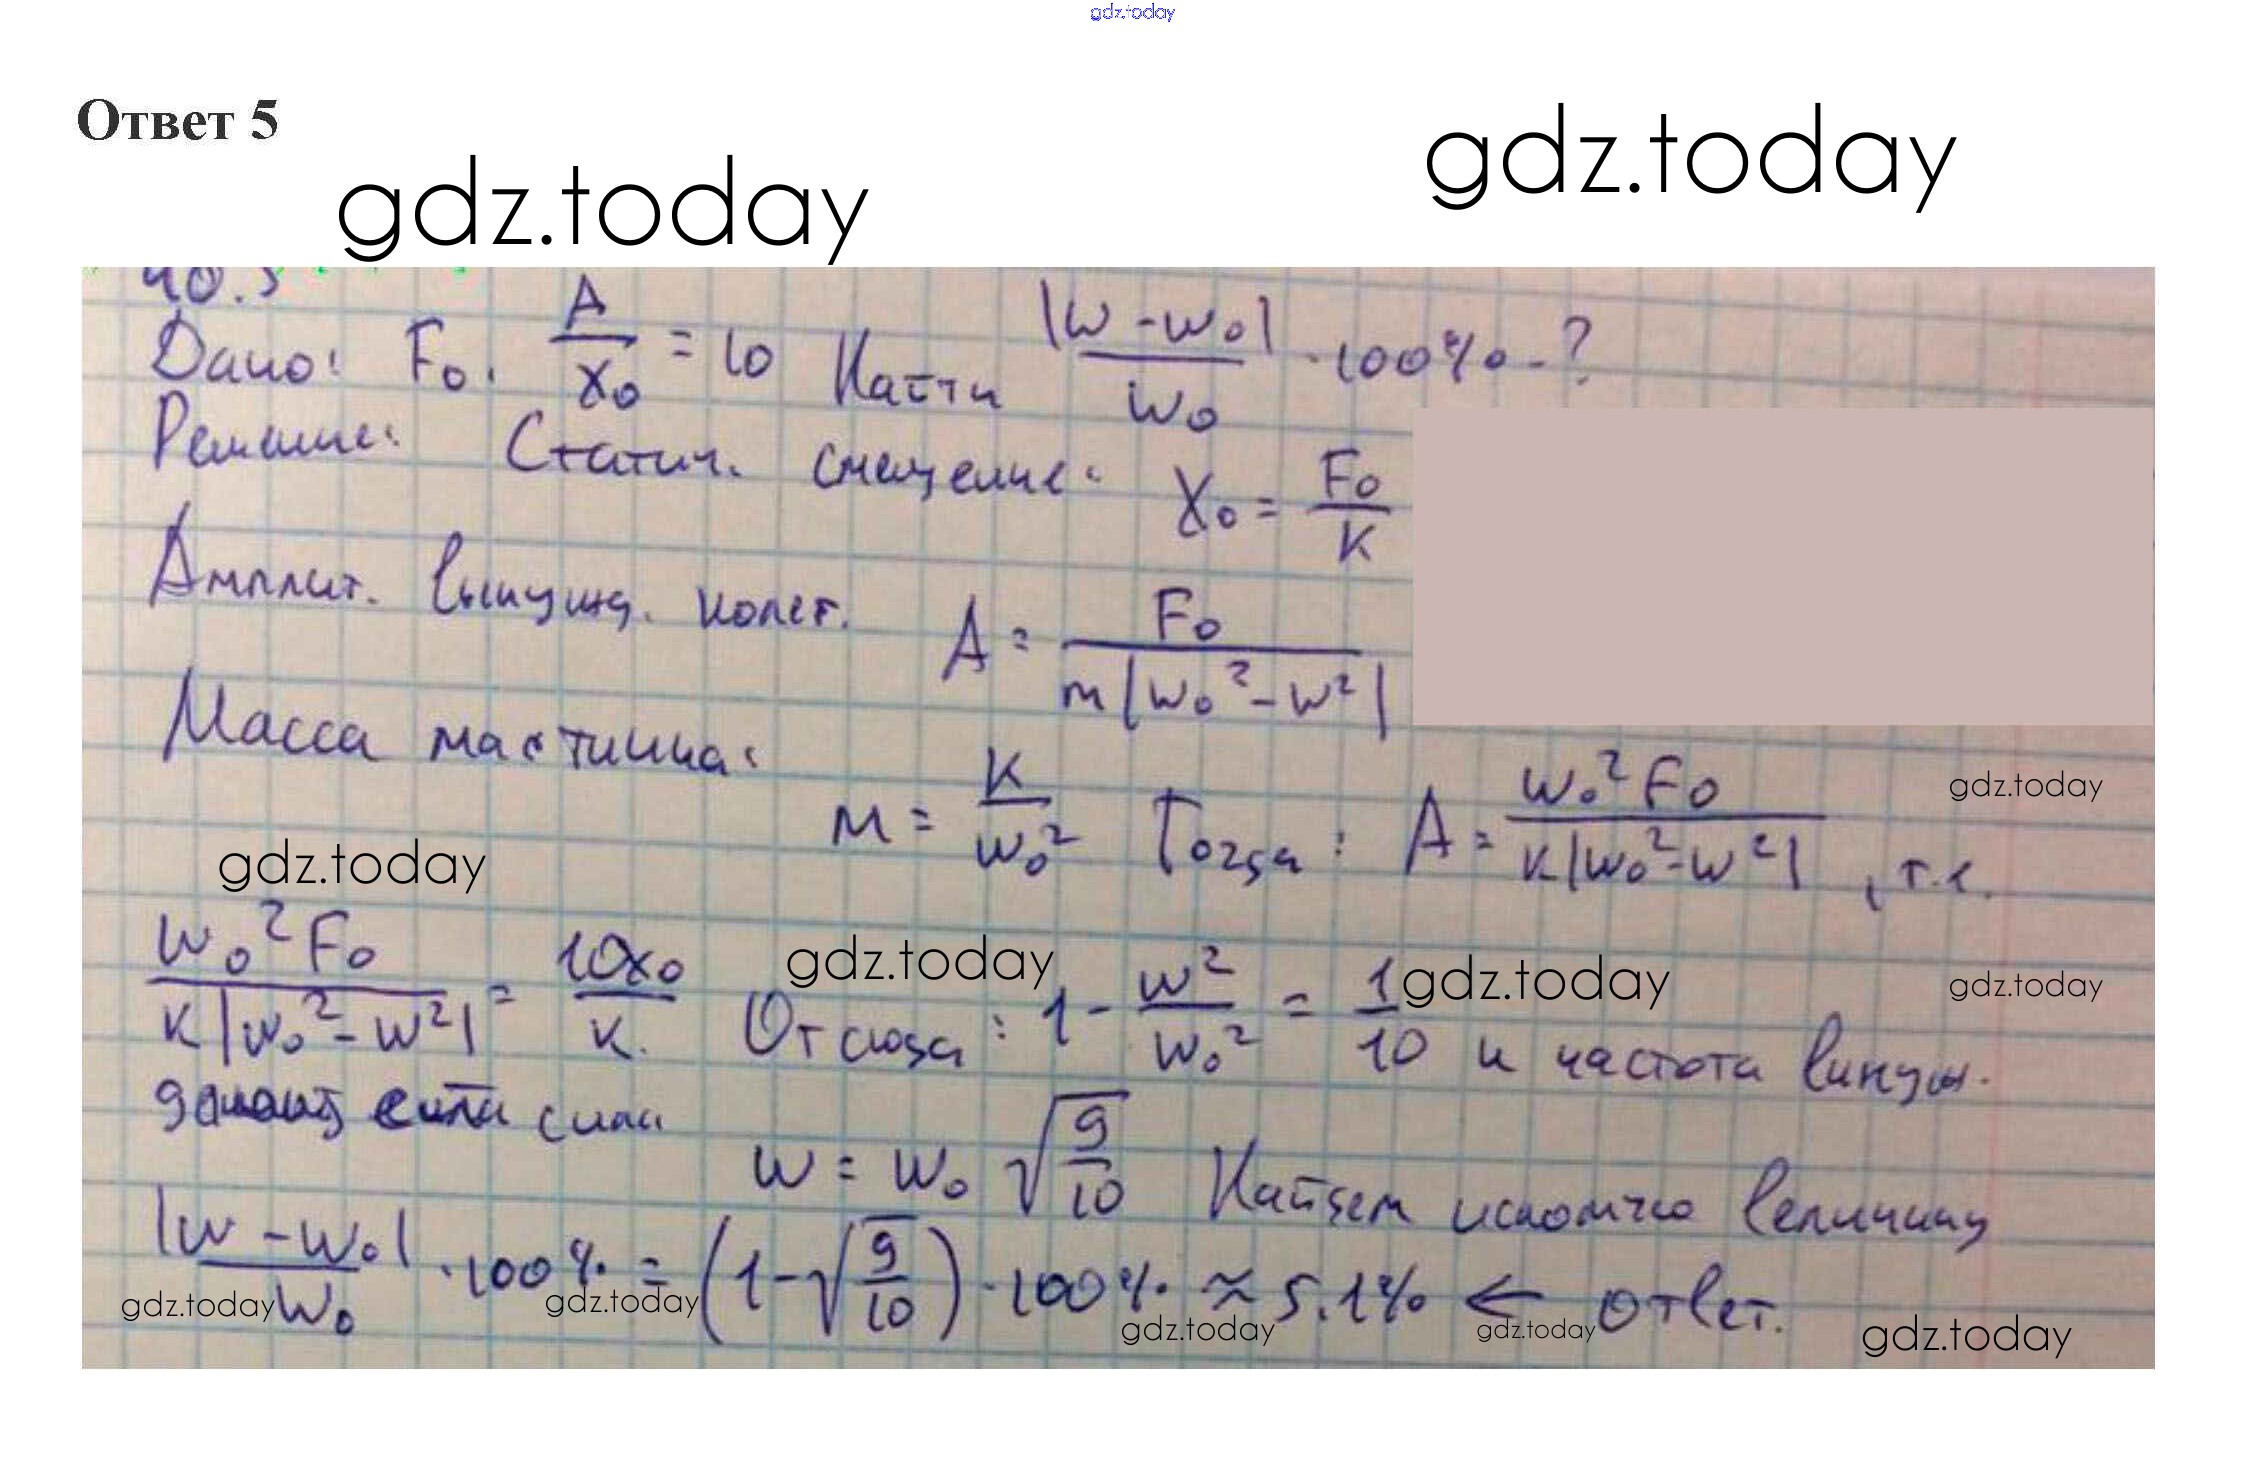 gdz.today
Ответ 5
gdz.today
gdz.today
40.5
Дано: F₀, A/x₀ = 10 Найти |w - w₀|/w₀ · 100% - ?
Решение: Статич. смещение: X₀ = F₀/K
Амплит. вынужд. колеб. A = F₀/(m|w₀² - w²|)
Масса маятника: m = K/w₀² Тогда: A = w₀²F₀/(K|w₀² - w²|), т.е.
gdz.today
gdz.today
w₀²F₀/(K|w₀² - w²|) = 10x₀/K. Отсюда: 1 - w²/w₀² = 1/10 и частота вынуж-
gdz.today
gdz.today
gdz.today
сила
w = w₀ √(9/10) Найдем искомую величину
|w - w₀|/w₀ · 100% = (1 - √(9/10)) · 100% ≈ 5.1% ← ответ.
gdz.today
gdz.today
gdz.today
gdz.today
gdz.today